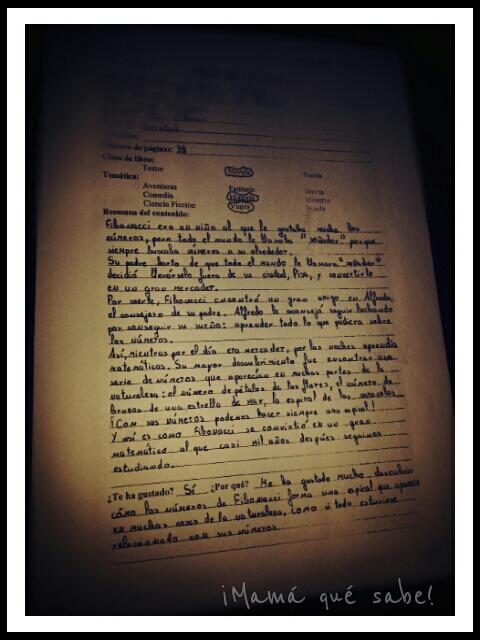 Número de páginas: 38
Clase de libro:
Teatro Novela Poesía
Temática:
Aventuras Fantasía
Comedia Historia Misterio
Ciencia Ficción Viajes
Resumen del contenido:
Fibonacci era un niño al que le gustaba mucho los
números, pero todo el mundo le llamaba "soñador" porque
siempre buscaba números a su alrededor.
Su padre, harto de que todo el mundo lo llamara "soñador"
decidió llevárselo fuera de su ciudad, Pisa, y convertirlo
en un gran mercader.
Por suerte, Fibonacci encontró un gran amigo en Alfredo,
el consejero de su padre. Alfredo le aconsejó seguir luchando
por conseguir su sueño: aprender todo lo que pudiera sobre
los números.
Así, mientras por el día era mercader, por las noches aprendía
matemáticas. Su mayor descubrimiento fue encontrar una
serie de números que aparecían en muchas partes de la
naturaleza: el número de pétalos de las flores, el número de
brazos de una estrella de mar, la espiral de las caracolas...
¡Con sus números podemos hacer siempre una espiral!
Y así es como Fibonacci se convirtió en un gran
matemático al que casi mil años después seguimos
estudiando.
¿Te ha gustado? Sí ¿Por qué? Me ha gustado mucho descubrir
cómo los números de Fibonacci forma una espiral que aparece
en muchas cosas de la naturaleza, como si todo estuviese
relacionado con sus números.
¡Mamá qué sabe!